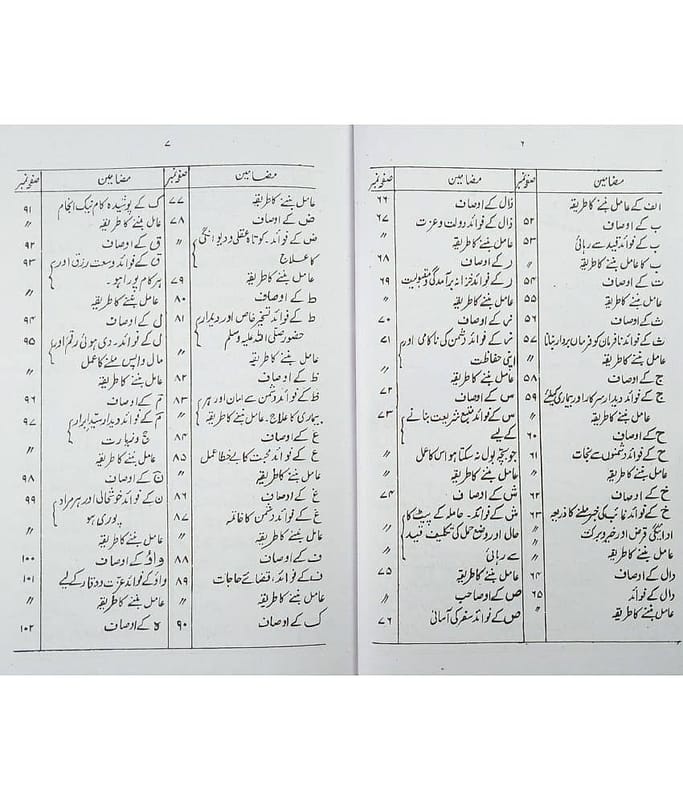 ۶
مضامین صفحہ نمبر
الف کے عامل بننے کا طریقہ
ب کے اوصاف ۵۲
ب کے فوائد قید سے رہائی ۵۳
ب کا عامل بننے کا طریقہ 〃
ت کے اوصاف ۵۴
عامل بننے کا طریقہ ۵۵
ث کے اوصاف ۵۶
ث کے فوائد نافرمان کو فرماں بردار بنانا ۵۷
عامل بننے کا طریقہ 〃
ج کے اوصاف ۵۸
ج کے فوائد دیدار سرکار اور بیماری کیلئے ۵۹
عامل بننے کا طریقہ 〃
ح کے اوصاف ۶۰
ح کے فوائد دشمنوں سے نجات ۶۱
عامل بننے کا طریقہ 〃
خ کے اوصاف ۶۲
خ کے فوائد غائب کی خبر ملنے کا ذریعہ ۶۳
ادائیگی قرض اور خیر و برکت 〃
عامل بننے کا طریقہ 〃
دال کے اوصاف ۶۴
دال کے فوائد ۶۵
عامل بننے کا طریقہ 〃
مضامین صفحہ نمبر
ذال کے اوصاف ۶۶
ذال کے فوائد دولت و عزت ۶۷
عامل بننے کا طریقہ 〃
ر کے اوصاف ۶۸
ر کے فوائد خزانہ برآمدگی و مقبولیت ۶۹
عامل بننے کا طریقہ 〃
ز کے اوصاف ۷۰
ز کے فوائد دشمن کی ناکامی اور ۷۱
اپنی حفاظت 〃
عامل بننے کا طریقہ
س کے اوصاف ۷۲
س کے فوائد متبع شریعت بنانے ۷۳
کے لیے
جو بچہ بول نہ سکتا ہو اس کا عمل 〃
عامل بننے کا طریقہ 〃
ش کے اوصاف ۷۴
ش کے فوائد۔ حاملہ کے پیٹ کا
حال اور وضع حمل کی تکلیف قید 〃
سے رہائی
عامل بننے کا طریقہ ۷۵
ص کے اوصاحب 〃
ص کے فوائد سفر کی آسانی ۷۶
۷
مضامین صفحہ نمبر
عامل بننے کا طریقہ ۷۷
ض کے اوصاف ۷۸
ض کے فوائد۔ کوتاہ عقلی و دیوانگی 〃
کا علاج
عامل بننے کا طریقہ ۷۹
ط کے اوصاف ۸۰
ط کے فوائد تسخیر خاص اور دیدار ۸۱
حضور صلی اللہ علیہ وسلم
عامل بننے کا طریقہ 〃
ظ کے اوصاف ۸۲
ظ کے فوائد دشمن سے امان اور ہر ۸۳
بیماری کا علاج۔ عامل بننے کا طریقہ
ع کے اوصاف ۸۴
ع کے فوائد محبت کا بے خطا عمل ۸۵
عامل بننے کا طریقہ 〃
غ کے اوصاف ۸۶
غ کے فوائد دشمن کا خاتمہ ۸۷
عامل بننے کا طریقہ 〃
ف کے اوصاف ۸۸
ف کے فوائد، قضائے حاجات ۸۹
عامل بننے کا طریقہ 〃
ک کے اوصاف ۹۰
مضامین صفحہ نمبر
ک کے پوشیدہ کام نیک انجام ۹۱
عامل بننے کا طریقہ 〃
ق کے اوصاف ۹۲
ق کے فوائد وسعت رزق اور ۹۳
ہر کام پورا ہو۔
عامل بننے کا طریقہ 〃
ل کے اوصاف ۹۴
ل کے فوائد۔ دی ہوئی رقم اور ۹۵
مال واپس ملنے کا عمل
عامل بننے کا طریقہ 〃
م کے اوصاف ۹۶
م کے فوائد دیدار سید ابرار ۹۷
حج و زیارت
عامل بننے کا طریقہ 〃
ن کے اوصاف ۹۸
ن کے فوائد خوشحالی اور ہر مراد ۹۹
پوری ہو
عامل بننے کا طریقہ 〃
واؤ کے اوصاف ۱۰۰
واؤ کے فوائد عزت و وقار کے لیے ۱۰۱
عامل بننے کا طریقہ 〃
ہ کے اوصاف ۱۰۲